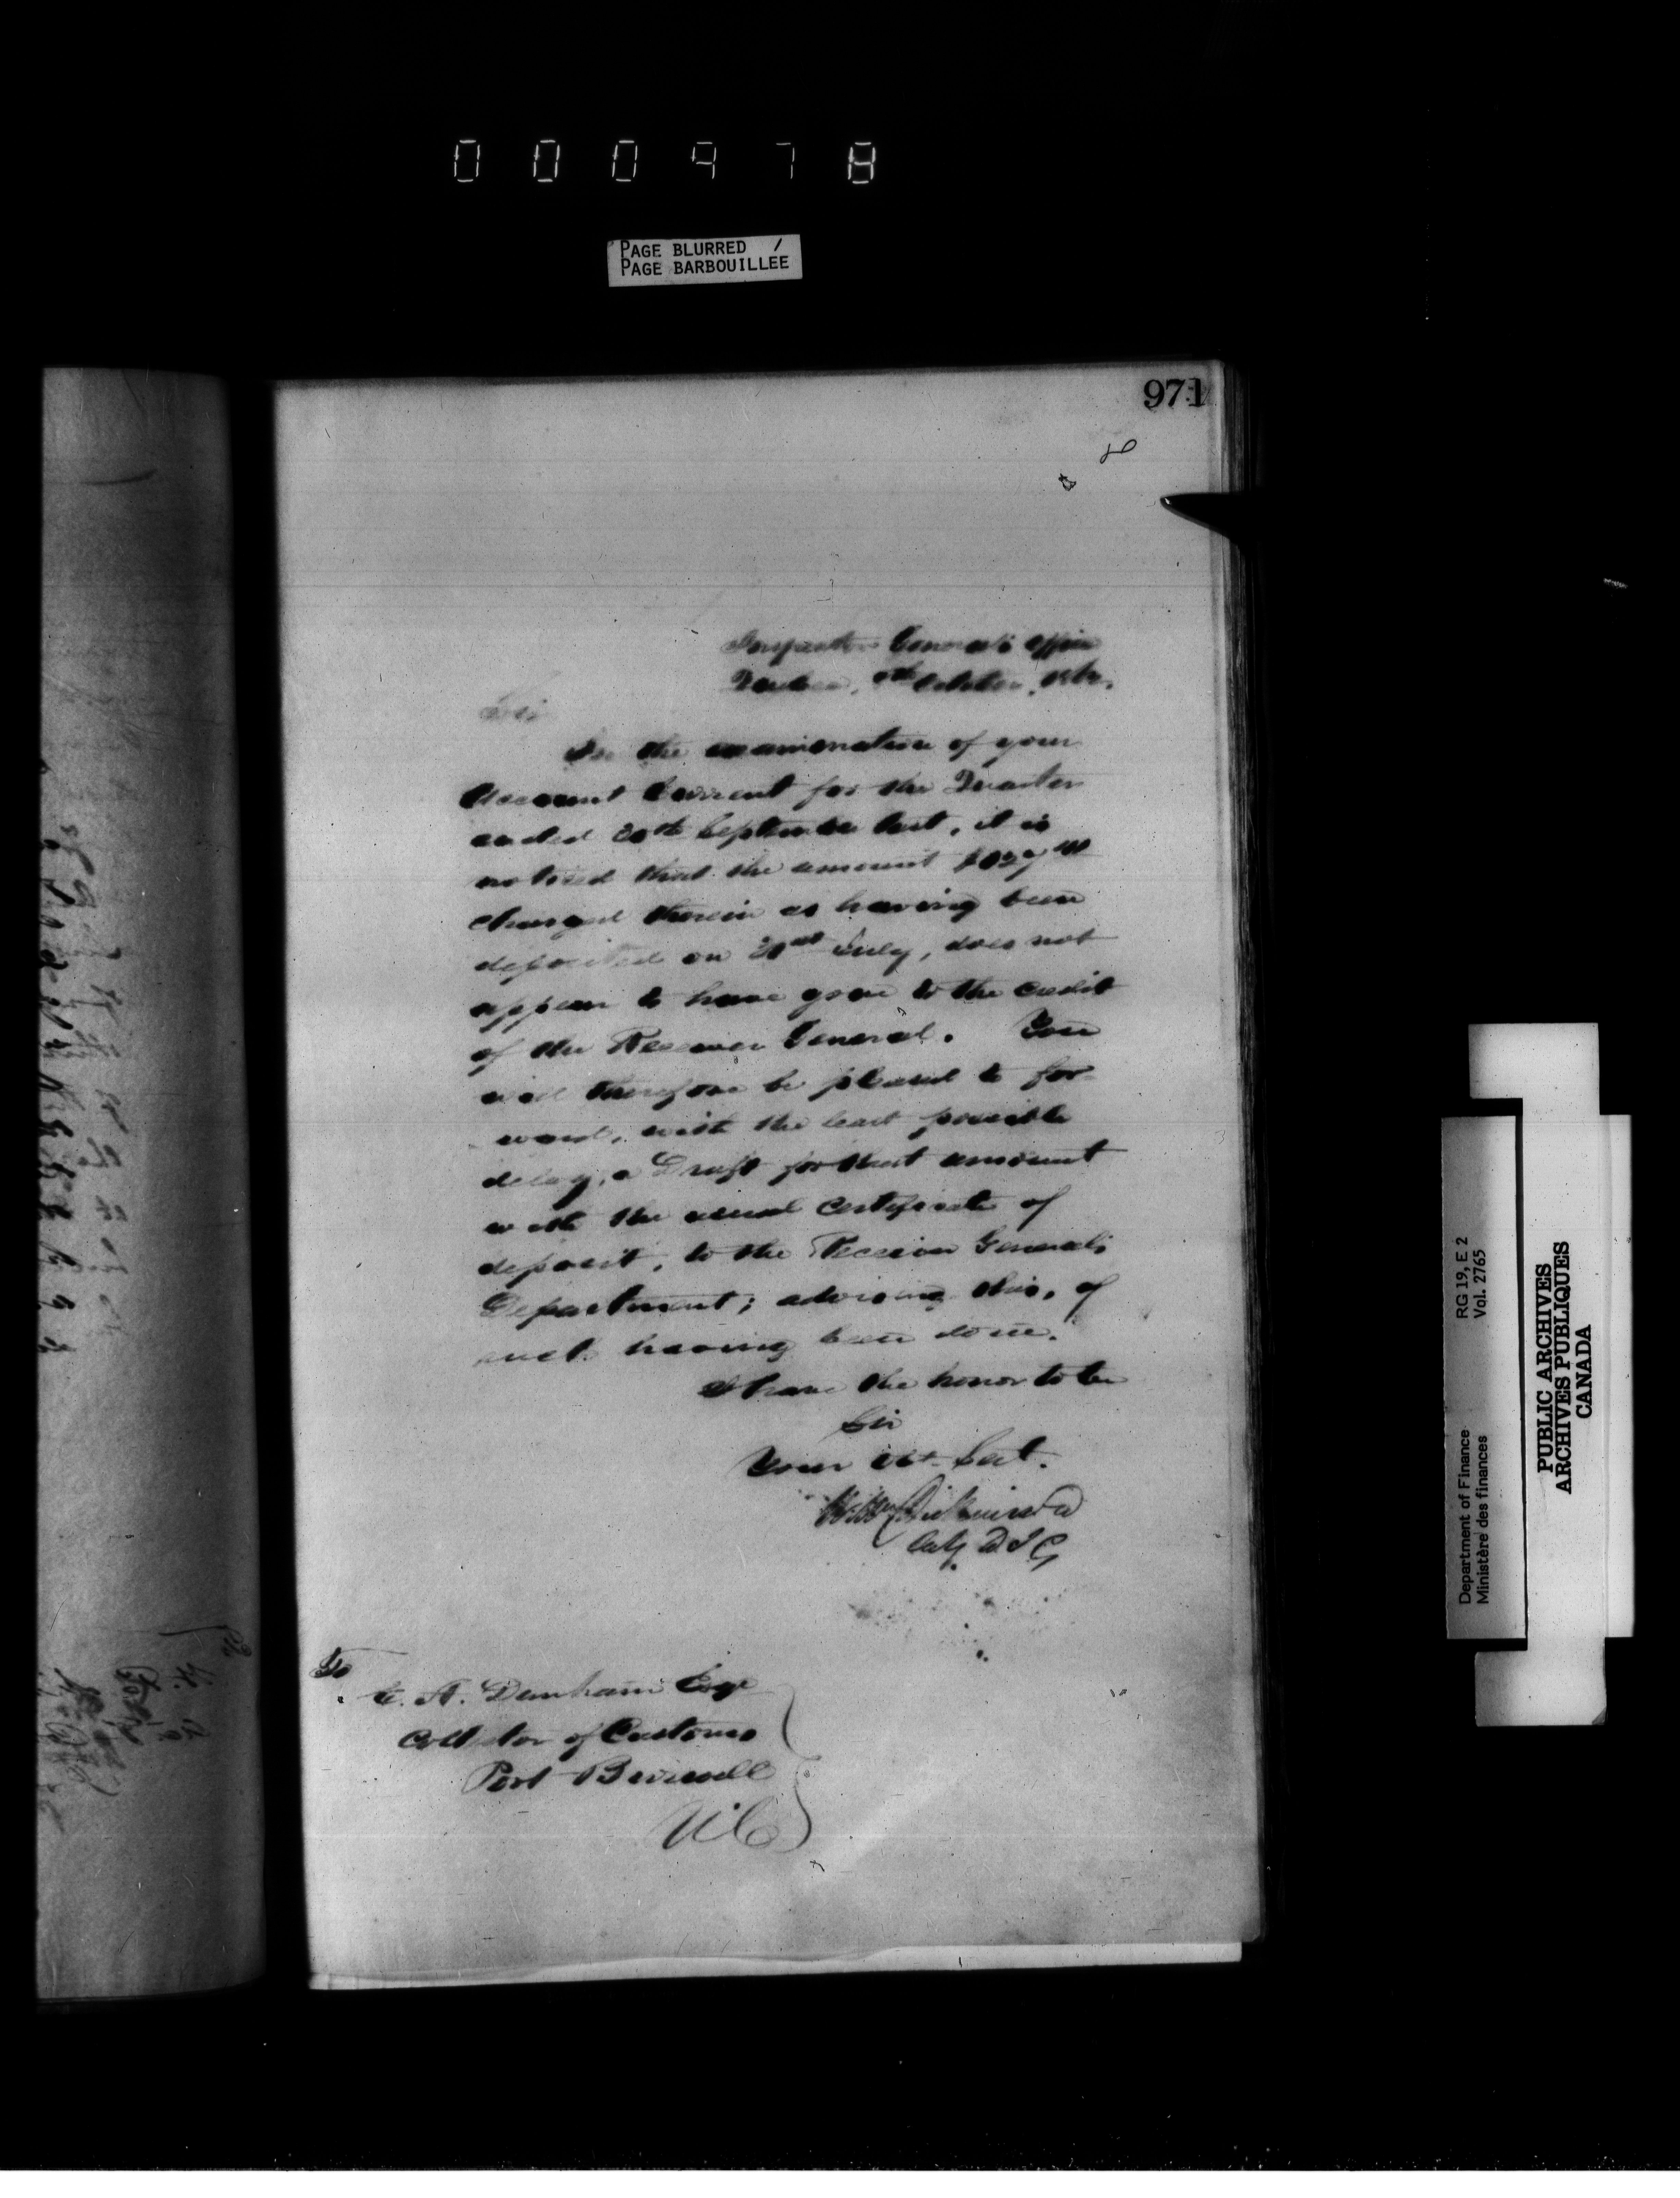 000978
PAGE BLURRED /
PAGE BARBOUILLEE
971
Inspector General's Office
Quebec, October,
Sir
In the examination of your
Account Current for the Quarter
ended 30th September last, it is
noticed that the amount
charged therein as having been
deposited on July, does not
appear to have gone to the credit
of the Receiver General. You
will therefore be pleased to for-
ward, with the least possible
delay, a Draft for that amount
with the usual certificate of
deposit, to the Receiver General's
Department; advising this, of
such having been done.
I have the honor to be
Sir
Your obt. Sert.
Wm Dickinson
Actg. D I G
To
E. A. Dunham Esqr
Collector of Customs
Port Burwell
U.C.
Department of Finance RG 19, E 2
Ministère des finances Vol. 2765
PUBLIC ARCHIVES
ARCHIVES PUBLIQUES
CANADA